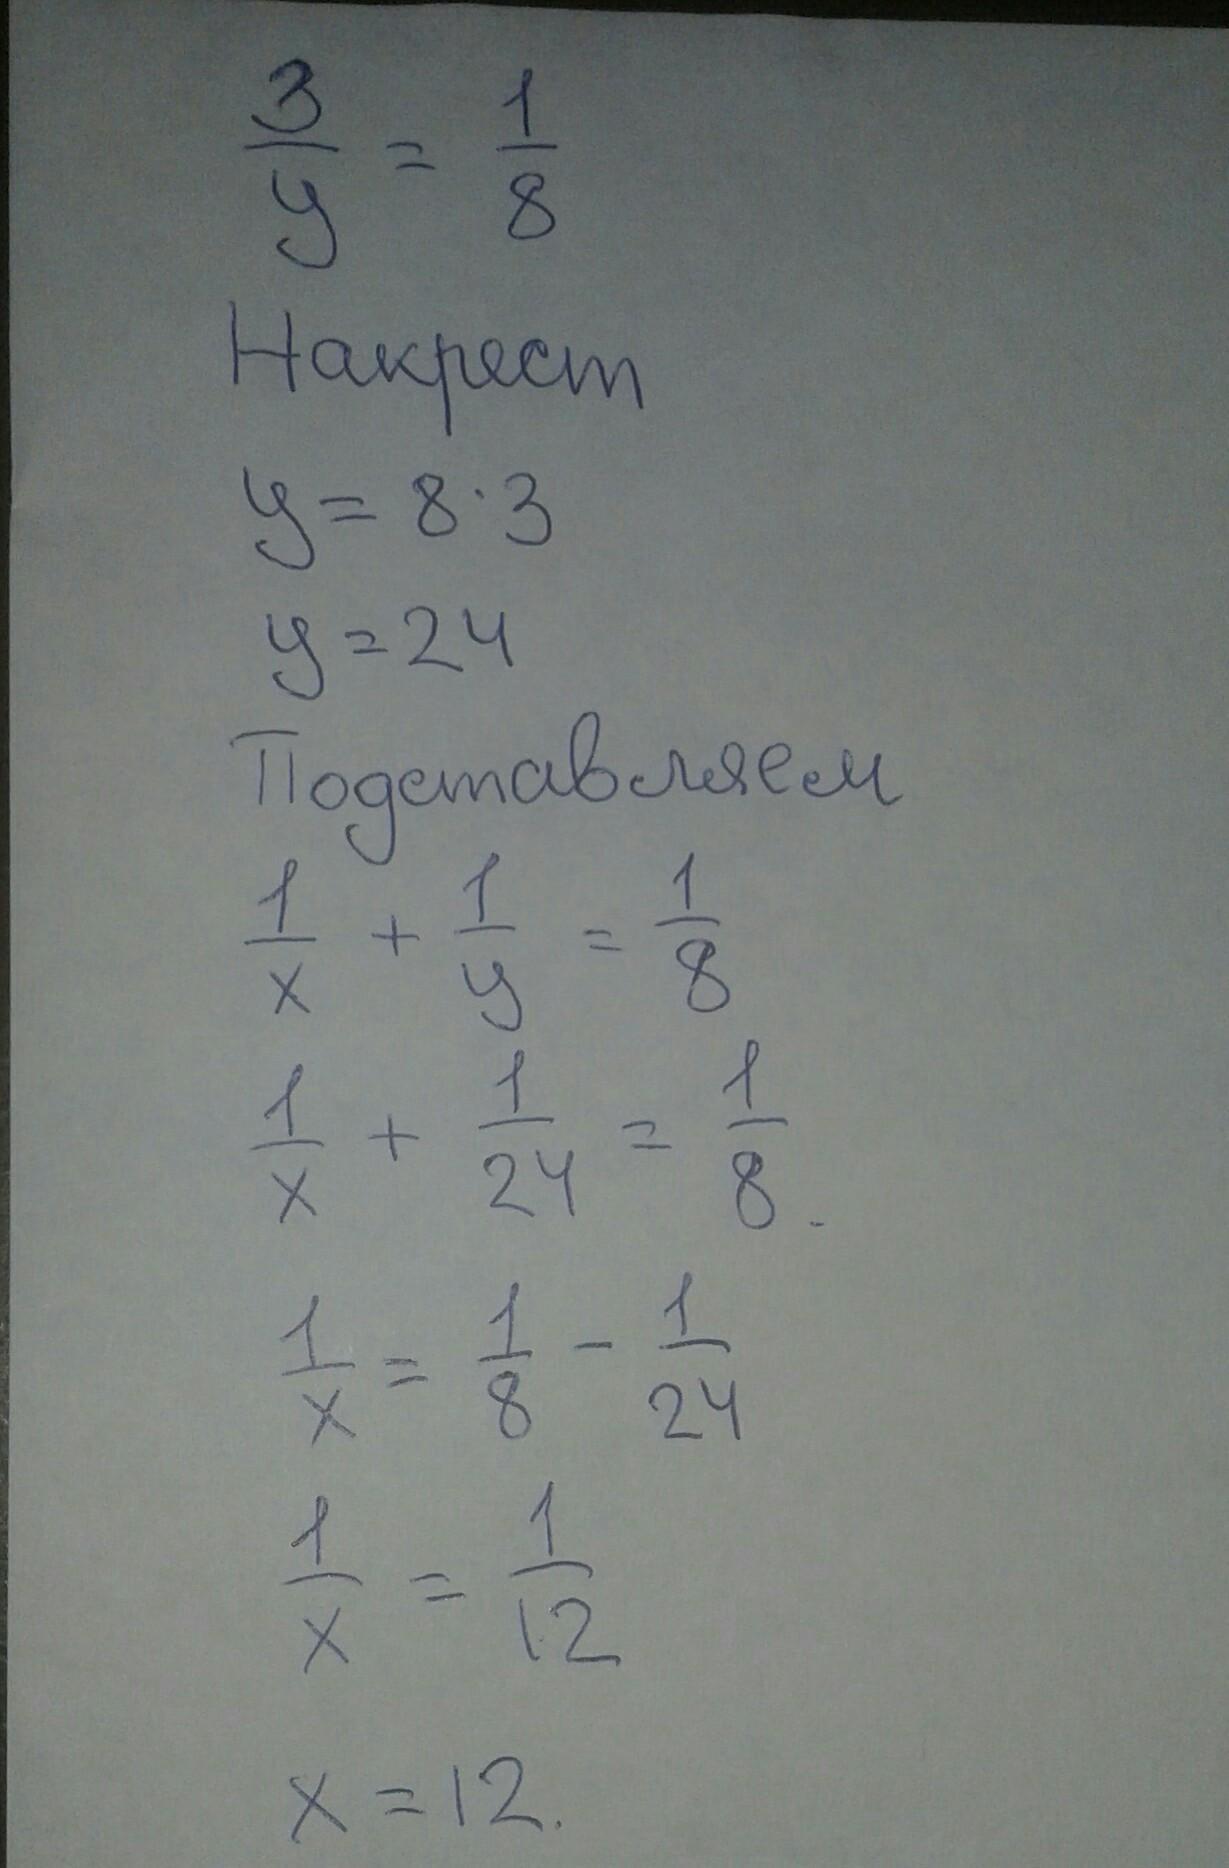 3/y = 1/8
Накрест
y = 8·3
y = 24
Подставляем
1/x + 1/y = 1/8
1/x + 1/24 = 1/8.
1/x = 1/8 - 1/24
1/x = 1/12
x = 12.